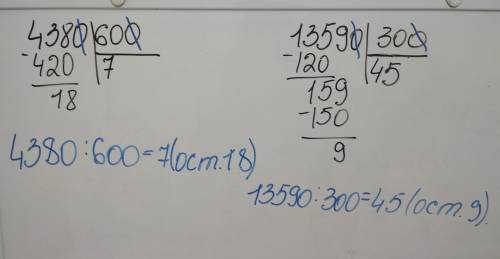 4380 600
-420 7
18
13590 300
-120 45
159
-150
9
4380:600=7(ост.18)
13590:300=45(ост.9).